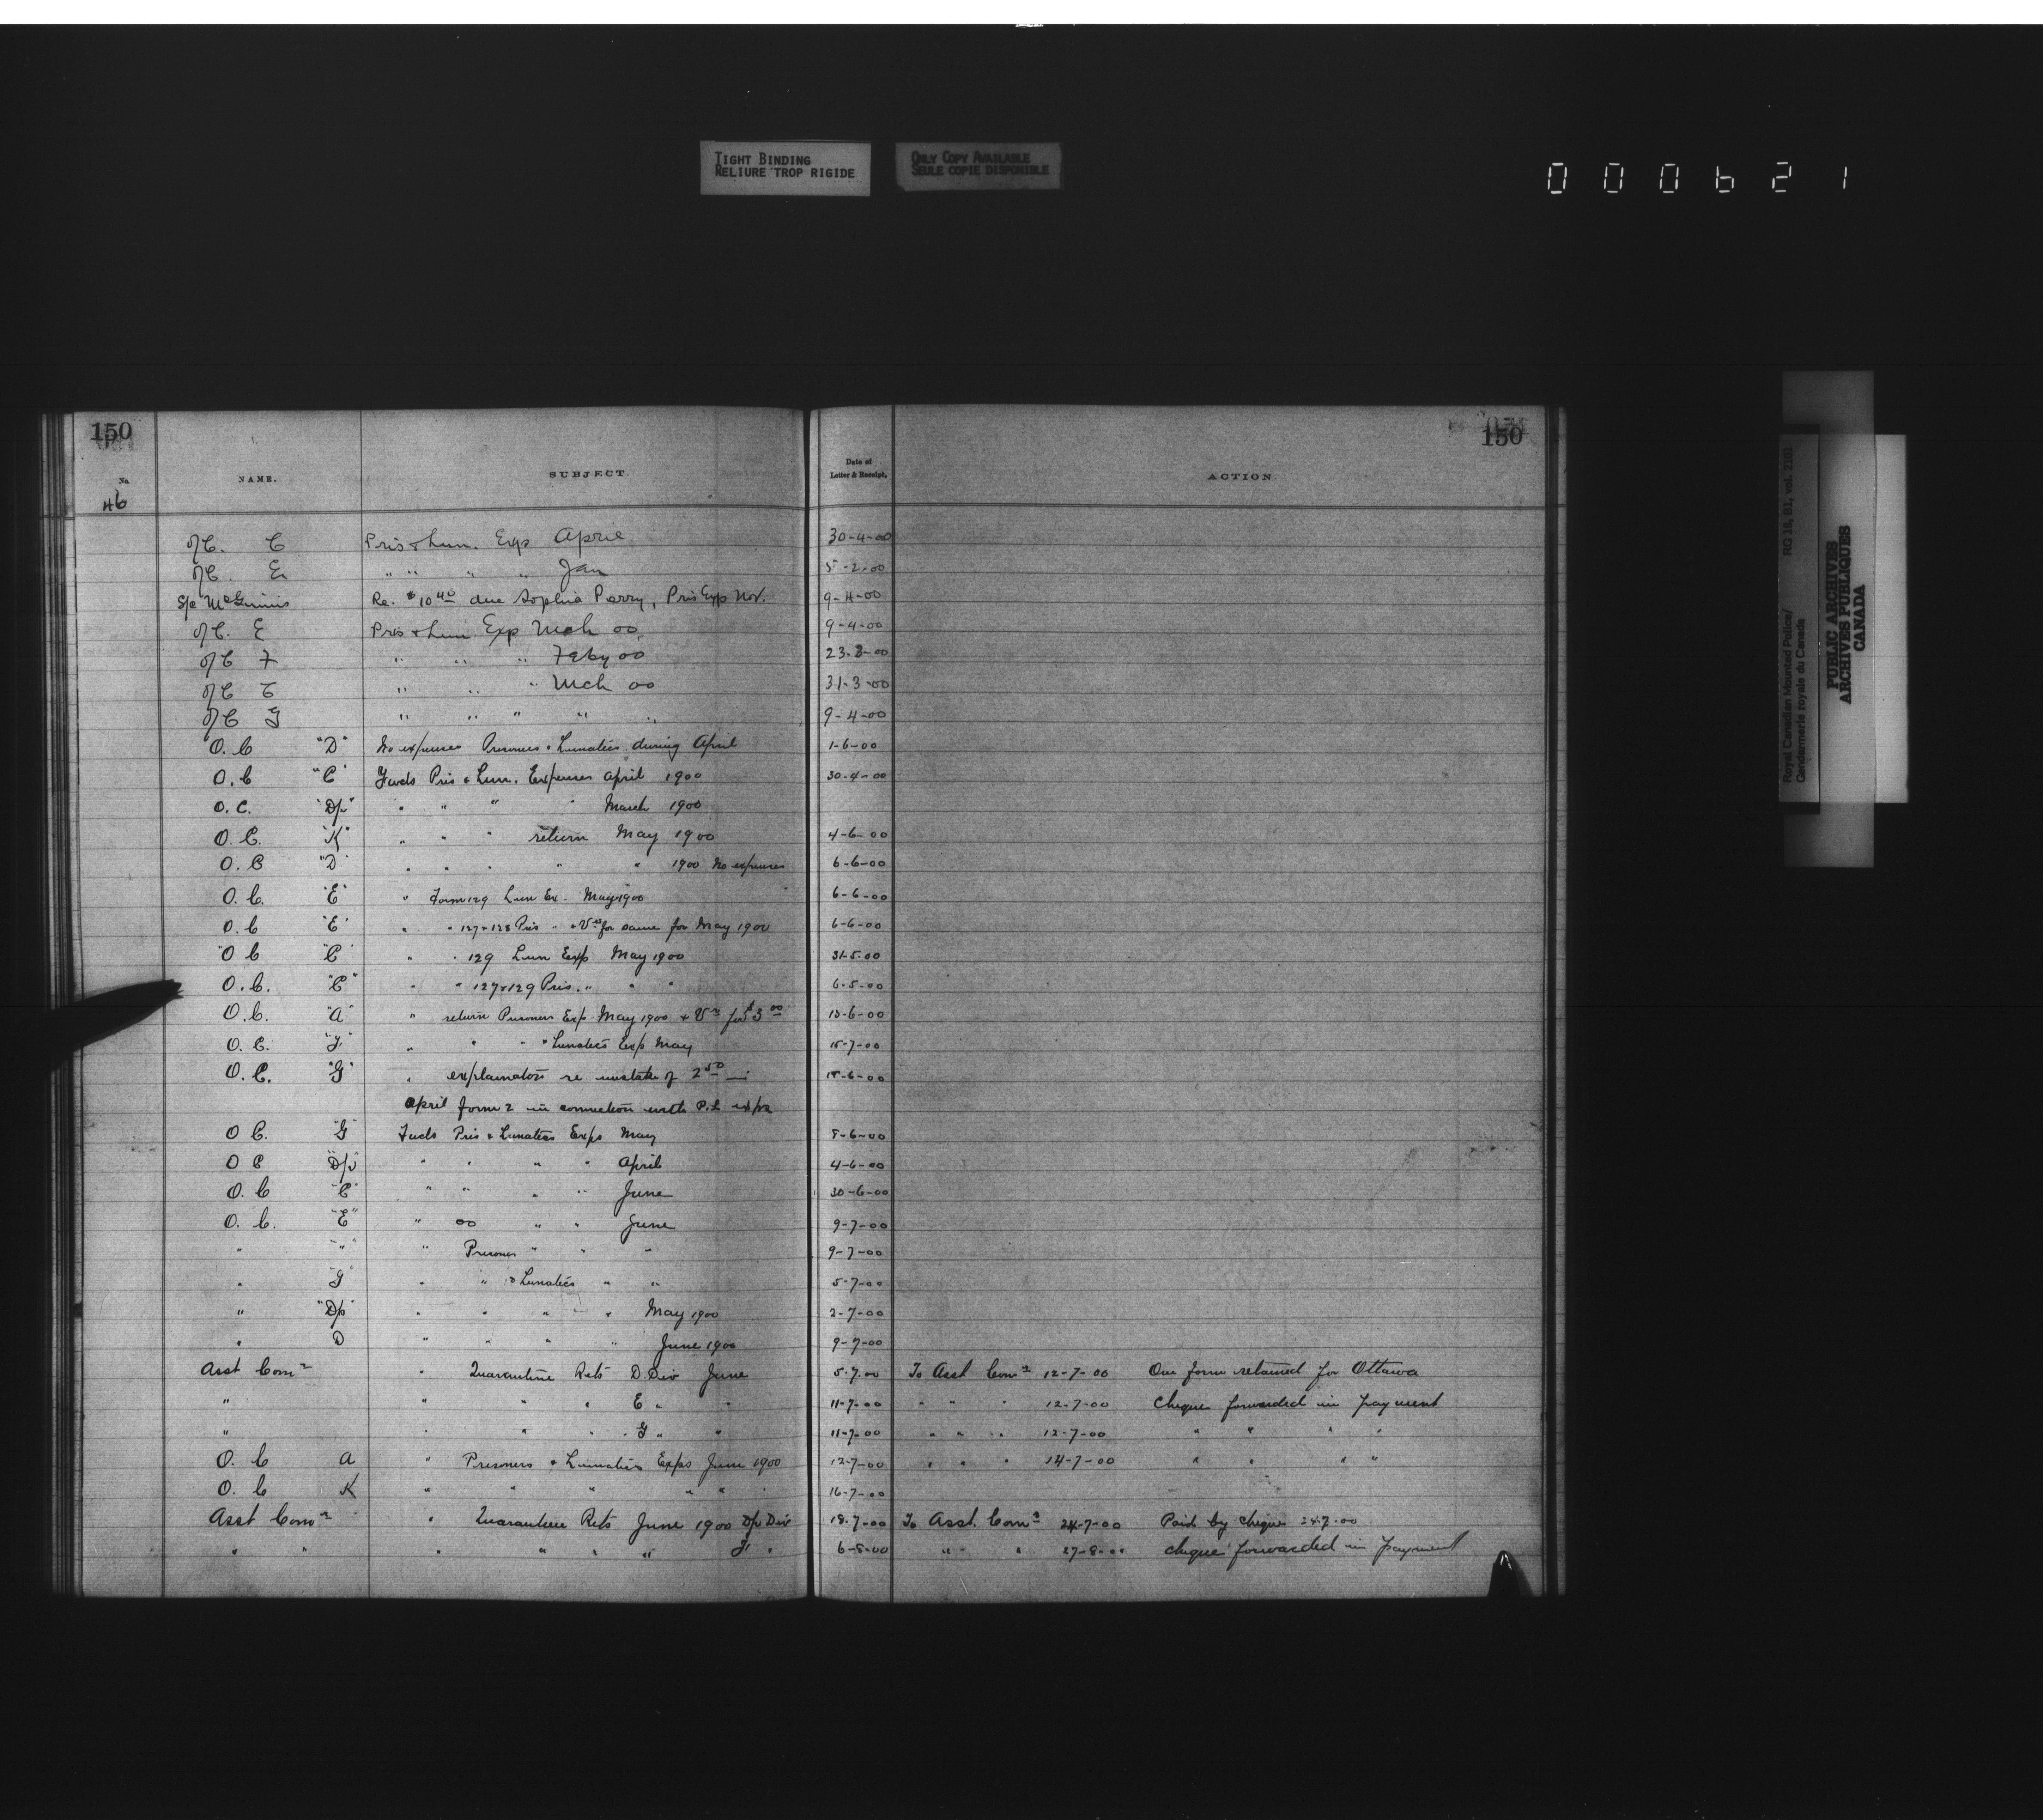 TIGHT BINDING
RELIURE TROP RIGIDE
ONLY COPY AVAILABLE
SEULE COPIE DISPONIBLE
000621
150
150
No.
NAME.
SUBJECT.
Date of Letter & Receipt.
ACTION.
46
O/C. C Pris & Lun. Exp April 30-4-00
O/C. E " " " " Jan 5-2-00
S/S McGinnis Re. $10 40 due Sophia Perry, Pris Exp Nov. 9-4-00
O/C. E Pris & Lun Exp Mch 00 9-4-00
O/C F " " " Feby 00 23-3-00
O/C C " " " Mch 00 31-3-00
O/C G " " " " " 9-4-00
O. C "D" No expenses Prisoners & Lunatics during April 1-6-00
O. C "C" Fwds Pris & Lun. Expenses April 1900 30-4-00
O. C. "Dp" " " " " March 1900
O. C. "K" " " " return May 1900 4-6-00
O. C "D" " " " " " 1900 No expenses 6-6-00
O. C. "E" " Form 129 Lun Ex. May 1900 6-6-00
O. C "E" " " 127 & 128 Pris " & Vrs for same for May 1900 6-6-00
O C "C" " " 129 Lun Exp May 1900 31-5-00
O. C. "C" " " 127 & 129 Pris. " " " 6-5-00
O. C. "A" " return Prisoners Exp May 1900 & Vr for $3 00 13-6-00
O. C. "F" " " " " Lunatics Exp May 15-7-00
O. C. "G" " explanation re mistake of 2 50 in 15-6-00
April form 2 in connection with P.L exps
O C. "G" Fwds Pris & Lunatics Exps May 8-6-00
O C "Dp" " " " " April 4-6-00
O. C "C" " " " " June 30-6-00
O. C. "E" " 00 " " June 9-7-00
" "" " Prisoner " " " 9-7-00
" "G" " " & Lunatics " " 5-7-00
" "Dp" " " " " May 1900 2-7-00
" D " " " " June 1900 9-7-00
Asst Comr " Quarantine Rets D Div June 5-7-00 To Asst Comr 12-7-00 One form retained for Ottawa
" " " " E " " 11-7-00 " " " 12-7-00 Cheque forwarded in payment
" " " " G " " 11-7-00 " " " 12-7-00 " " " "
O. C A " Prisoners & Lunatics Exps June 1900 12-7-00 " " " 14-7-00 " " " "
O. C K " " " " " " 16-7-00
Asst Comr " Quarantine Rets June 1900 Dp Div 18-7-00 To Asst. Comr 24-7-00 Paid by cheque 24-7-00
" " " " " " F " 6-8-00 " " 27-8-00 cheque forwarded in payment
Royal Canadian Mounted Police/
Gendarmerie royale du Canada
RG 18, B1, vol. 2101
PUBLIC ARCHIVES
ARCHIVES PUBLIQUES
CANADA